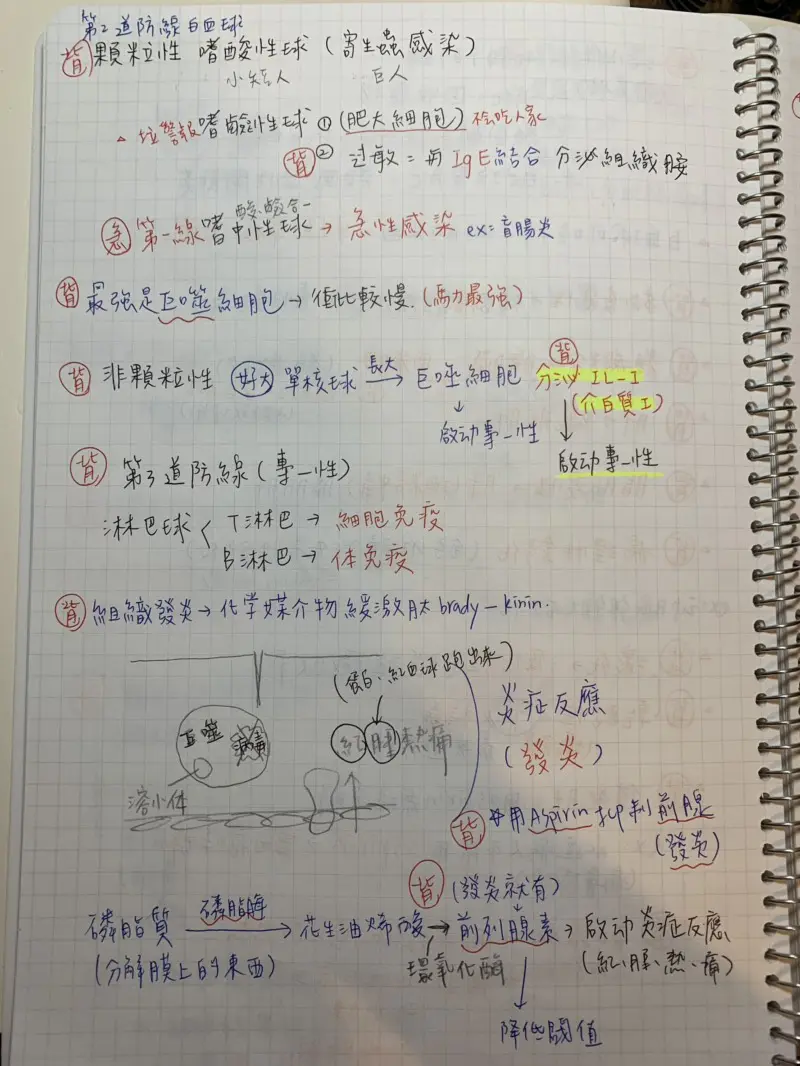 第2道防線白血球
背 顆粒性 嗜酸性球(寄生蟲感染)
小矮人 巨人
嗜鹼性球 ①(肥大細胞)
背 ② 过敏=与IgE結合 分泌組織胺
酸、鹼合一
急 第一線嗜中性球→急性感染 ex=盲腸炎
背 最強是巨噬細胞→但比較慢.(馬力最強)
背
背 非顆粒性 好大 單核球 長大→ 巨噬細胞 分泌IL-I
(介白質I)
↓啟动專一性
↓啟动專一性
背 第3道防線(專一性)
淋巴球< T淋巴→細胞免疫
B淋巴→体免疫
背 組織發炎→化学媒介物緩激肽brady-kinin.
(蛋白、紅血球跑出來)
巨噬 病毒
紅腫熱痛
炎症反應
(發炎)
溶小体
背 用Aspirin 抑制前腺
(發炎)
背 (發炎就有)
磷脂質 磷脂酶→ 花生油烯酸→前列腺素→啟动炎症反應
(分解膜上的東西) 環氧化酶 (紅、腫、熱、痛)
↓
降低閾值